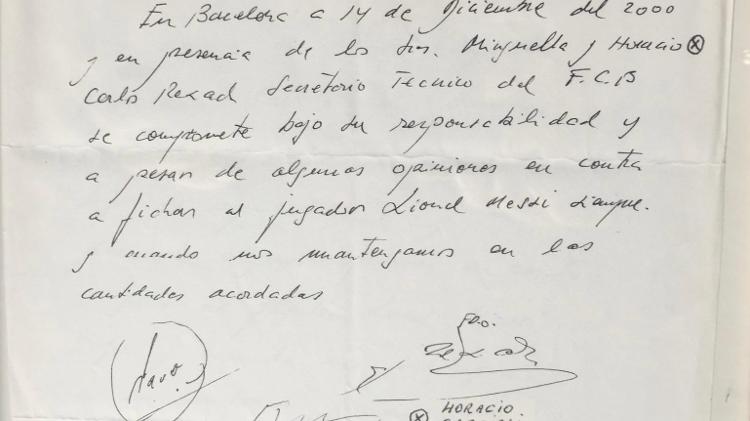 En Barcelona a 14 de Diciembre del 2000
y en presencia de los Srs. Minguella y Horacio ⊗
Carlos Rexach Secretario Tecnico del F.C.B
se compromete bajo su responsabilidad y
a pesar de algunas opiniones en contra
a fichar al jugador Lionel Messi siempre.
y cuando nos mantengamos en las
cantidades acordadas
Fdo.
⊗ HORACIO